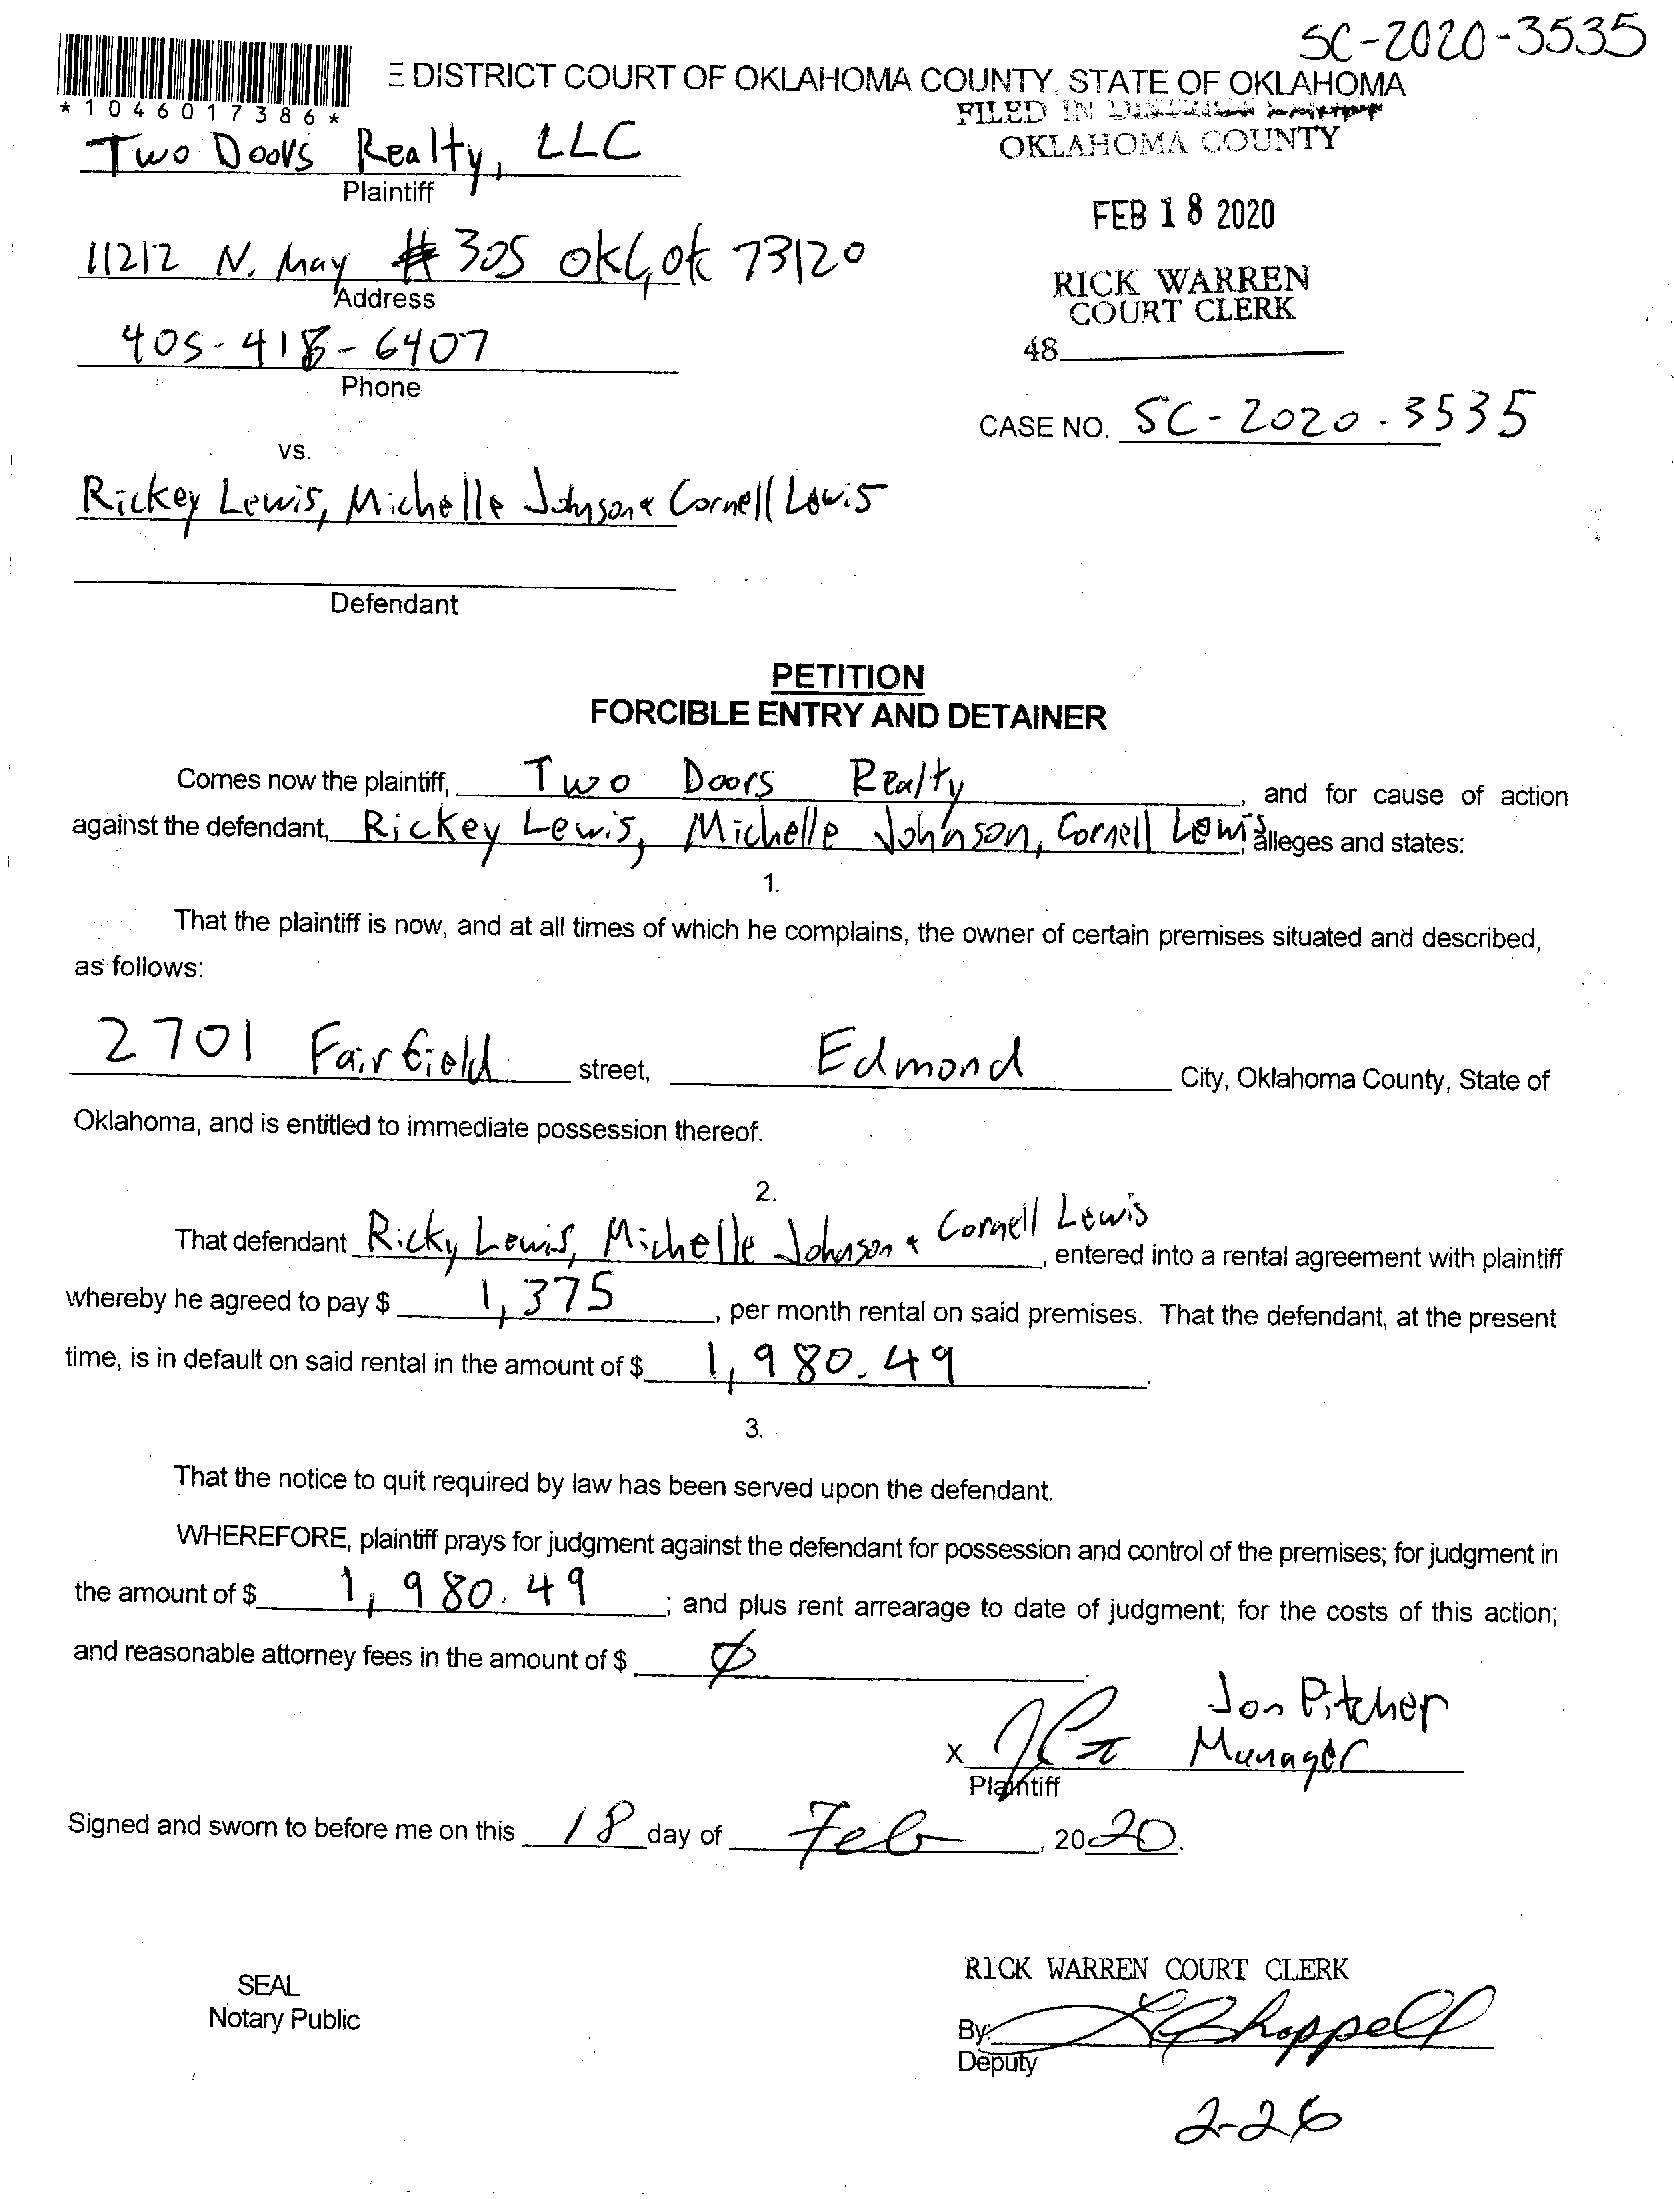 SC-2020-3535
E DISTRICT COURT OF OKLAHOMA COUNTY, STATE OF OKLAHOMA
*1046017386*
FILED IN
OKLAHOMA COUNTY
Two Doors Realty, LLC
Plaintiff
FEB 18 2020
11212 N. May # 305 OKC, OK 73120
Address
RICK WARREN
COURT CLERK
405-418-6407
Phone
48
CASE NO. SC-2020-3535
vs.
Rickey Lewis, Michelle Johnson & Cornell Lewis
Defendant
PETITION
FORCIBLE ENTRY AND DETAINER
Comes now the plaintiff, Two Doors Realty, and for cause of action
against the defendant, Rickey Lewis, Michelle Johnson, Cornell Lewis, alleges and states:
1.
That the plaintiff is now, and at all times of which he complains, the owner of certain premises situated and described,
as follows:
2701 Fairfield street, Edmond City, Oklahoma County, State of
Oklahoma, and is entitled to immediate possession thereof.
2.
That defendant Ricky Lewis, Michelle Johnson & Cornell Lewis, entered into a rental agreement with plaintiff
whereby he agreed to pay $ 1,375, per month rental on said premises. That the defendant, at the present
time, is in default on said rental in the amount of $ 1,980.49.
3.
That the notice to quit required by law has been served upon the defendant.
WHEREFORE, plaintiff prays for judgment against the defendant for possession and control of the premises; for judgment in
the amount of $ 1,980.49; and plus rent arrearage to date of judgment; for the costs of this action;
and reasonable attorney fees in the amount of $ Ø.
Jon Pitcher
X Manager
Plaintiff
Signed and sworn to before me on this 18 day of Feb, 2020.
RICK WARREN COURT CLERK
SEAL
Notary Public
By: Chappell
Deputy
2-26